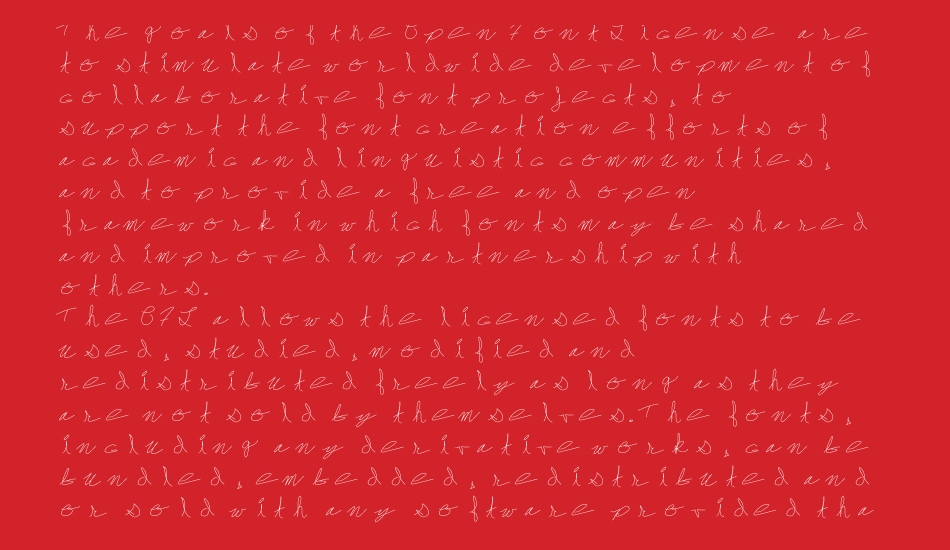 The goals of the Open Font License are
to stimulate worldwide development of
collaborative font projects, to
support the font creation efforts of
academic and linguistic communities,
and to provide a free and open
framework in which fonts may be shared
and improved in partnership with
others.
The OFL allows the licensed fonts to be
used, studied, modified and
redistributed freely as long as they
are not sold by themselves. The fonts,
including any derivative works, can be
bundled, embedded, redistributed and
or sold with any software provided tha